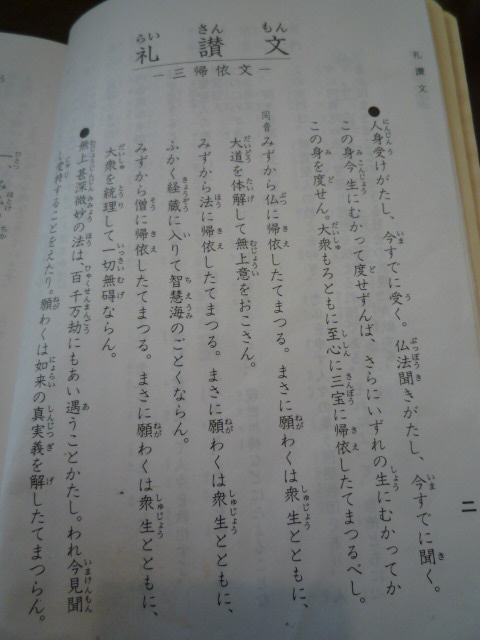 礼讃文
礼讃文
―三帰依文―
●人身受けがたし、今すでに受く。仏法聞きがたし、今すでに聞く。
この身今生にむかって度せずんば、さらにいずれの生にむかってか
この身を度せん。大衆もろともに至心に三宝に帰依したてまつるべし。
同音 みずから仏に帰依したてまつる。まさに願わくは衆生とともに、
大道を体解して無上意をおこさん。
みずから法に帰依したてまつる。まさに願わくは衆生とともに、
ふかく経蔵に入りて智慧海のごとくならん。
みずから僧に帰依したてまつる。まさに願わくは衆生とともに、
大衆を統理して一切無碍ならん。
●無上甚深微妙の法は、百千万劫にもあい遇うことかたし。われ今見聞
し受持することをえたり。願わくは如来の真実義を解したてまつらん。
二